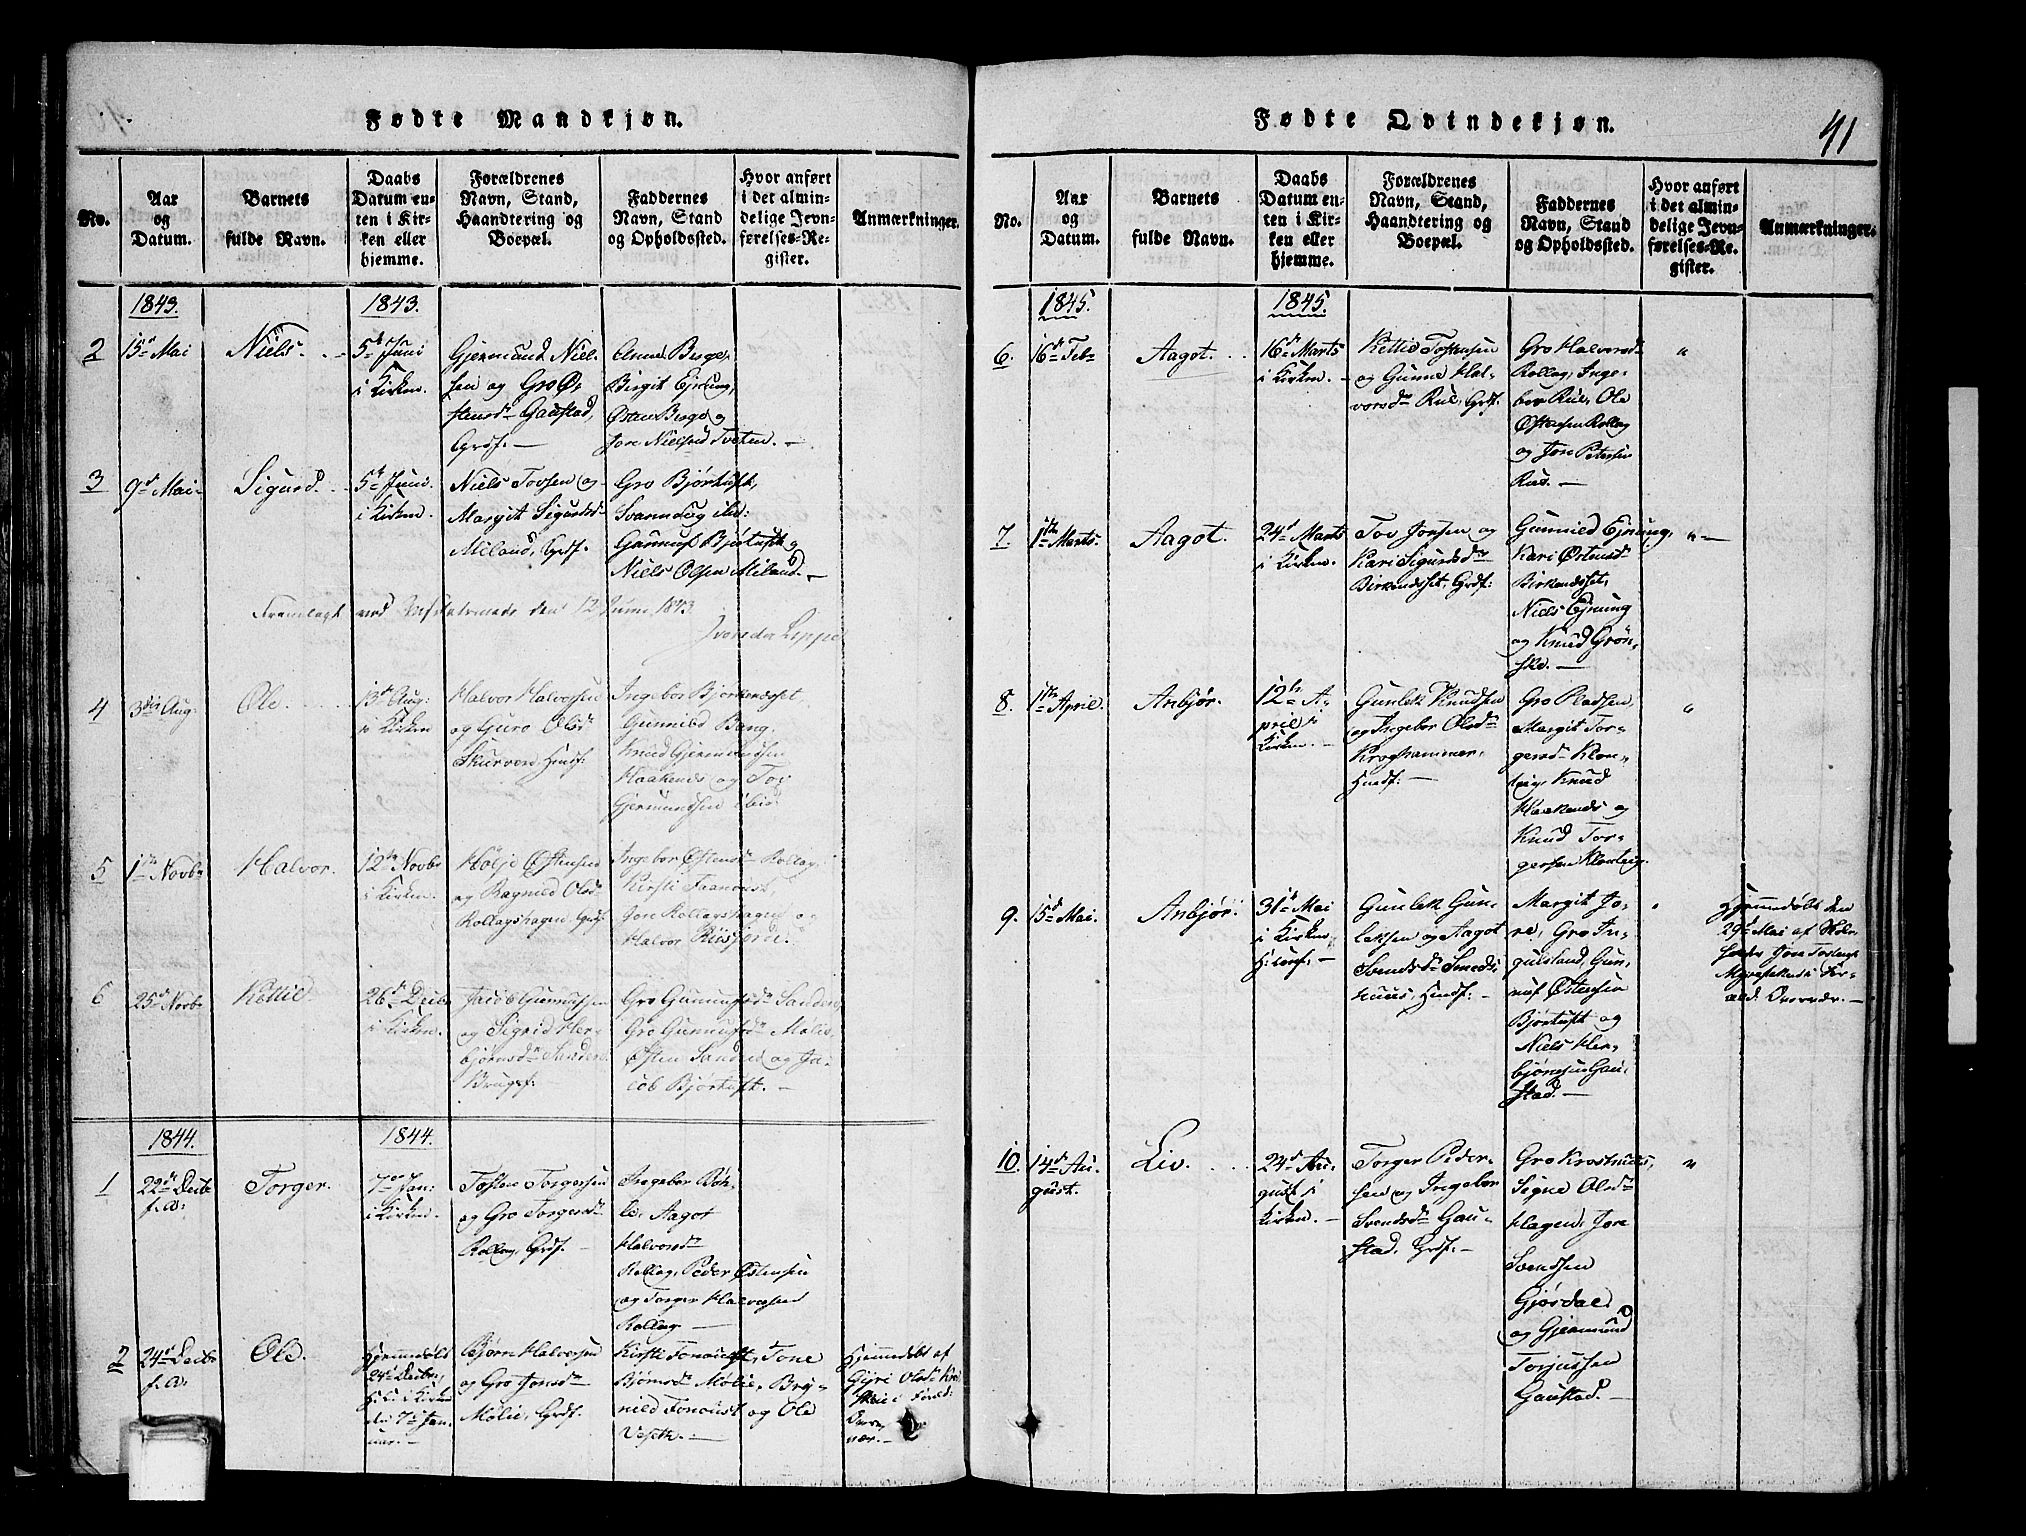 Fødte Mandkjøn.
No.
Aar
og
Datum.
Barnets
fulde Navn.
Daabs
Datum en-
ten i Kir-
ken eller
hjemme.
Forældrenes
Navn, Stand,
Haandtering og
Boepæl.
Faddernes
Navn, Stand
og Opholdssted.
Hvor anført
i det almin-
delige Jevn-
førelses-Re-
gister.
Anmærkninger.
1843.
1843.
2
15d Mai
Niels.
5te Juni
i Kirken.
Gjermund Niel-
sen og Gro Ø-
stensdr Gaustad,
Grdf.
Anne Berge,
Birgit Ejrung,
Østen Berge og
Jon Nielsen Tveten.
3
9d Mai
Sigurd.
5te Juni
i Kirken.
Niels Tovsen og
Margit Sigurdsd
Miland, Grdf.
Gro Bjørtuft,
Svanaug ibid:
Gunnuf Bjørtuft og
Niels Olsen Miland.
Fremlagt ved den 12 Juni 1843.
4
3die Aug:
Ole.
13d Aug:
i Kirken
Halvor Halvorsen
og Guro Olsd
Skurven, Hmdf:
Ingebor Bjørkendsset,
Gunnild Bang,
Knud Gjermundsen
Haakenes og Tov
Gjermundsen ibid:
5
1ste Novbr
Halvor.
12te Novbr
i Kirken.
Hølje Østensen
og Ragnild Olsd
Rollagshagen, Grdf
Ingebor Østensd Rollag,
Kirsti Faanoust,
Jon Rollagshagen og
Halvor Rusjorde.
6
25d Novbr
Kettil.
26d Decbr
i Kirken.
Jacob Gunnufsen
og Sigrid Her-
bjørnsdr Sanden,
Brugsf:
Gro Gunnufsdr Sanden,
Gro Gunnufsdr Mølie,
Østen Sanden og Ja-
cob Bjørtuft.
1844.
1844.
1
22d Decbr
f. A:
Torger.
7de Jan:
i Kirken.
Tosten Torgersen
og Gro Torgersdr
Rollag, Grdf.
Ingebor Bøh-
le, Aagot
Halvorsdr
Rollag, Peder Østensen
og Torger Halvorsen
Rollag
2
24d Decbr
f. A:
Ole.
Hjemmedøbt
24d Decbr,
i Kirken
7de Jan-
uar.
Bjørn Halvorsen
og Gro Jonsdr
Mølie, Grdf.
Kirsti Fonoust, Tone
Bjørnsdr Mølie, Bry-
nild Fonoust og Ole
Veseth.
Hjemmedøbt af
Gyri Olsdr
i Foræld:
Over-
vær.
Fødte Qvindekjøn.
41
No.
Aar
og
Datum.
Barnets
fulde Navn.
Daabs
Datum en-
ten i Kir-
ken eller
hjemme.
Forældrenes
Navn, Stand,
Haandtering og
Boepæl.
Faddernes
Navn, Stand
og Opholdssted.
Hvor anført
i det almin-
delige Jevn-
førelses-Re-
gister.
Anmærkninger.
1845.
1845.
6.
16d Feb
Aagot.
16d Marts
i Kirken.
Kettil Tostensen
og Gunne Hal-
vorsdr Rue, Grdf.
Gro Halvorsdr
Rollag, Inge-
bor Rue, Ole
Østensen Rollag
og Jon Petersen
Rue.
"
7.
1ste Marts.
Aagot.
24d Marts
i Kirken.
Tov Jonsen og
Kari Sigurdsdr
Birkendsset, Grdf:
Gunnild Ejrung,
Kari Østensd
Birkendsset,
Niels Ejrung
og Knud Grøn-
ske.
"
8.
1ste April.
Anbjør.
12te A-
pril i
Kirken.
Gunlek Knudsen
og Ingebor Olsdr
Kroghammer,
Hmdf:
Gro Pladsen,
Margit Tor-
gersdr Klon-
teig, Knud
Haakenes og
Knud Tor-
gersen Klonteig.
"
9.
15d Mai.
Anbjør.
31d Mai
i Kirken.
Gunlek Gun-
leksen og Aagot
Svendsdr Smeds-
huus, Hmdf:
Margit Jo-
re, Gro In-
gulsland, Gun-
nuf Østensen
Bjørtuft og
Niels Her-
bjørnsen Gau-
stad.
Hjemmedøbt den
29d Mai af Skole-
Jon Tostens
i For-
æld. Overvær.
10.
14d Au-
gust.
Liv.
24d Au-
gust i
Kirken.
Torger Peder-
sen og Ingebor
Svendsdr Gau-
stad, Grdf:
Gro Kroshuus,
Signe Olsdr
Hagen, Jon
Svendsen
Gjørdal
og Gjermund
Torjussen
Gaustad.
"